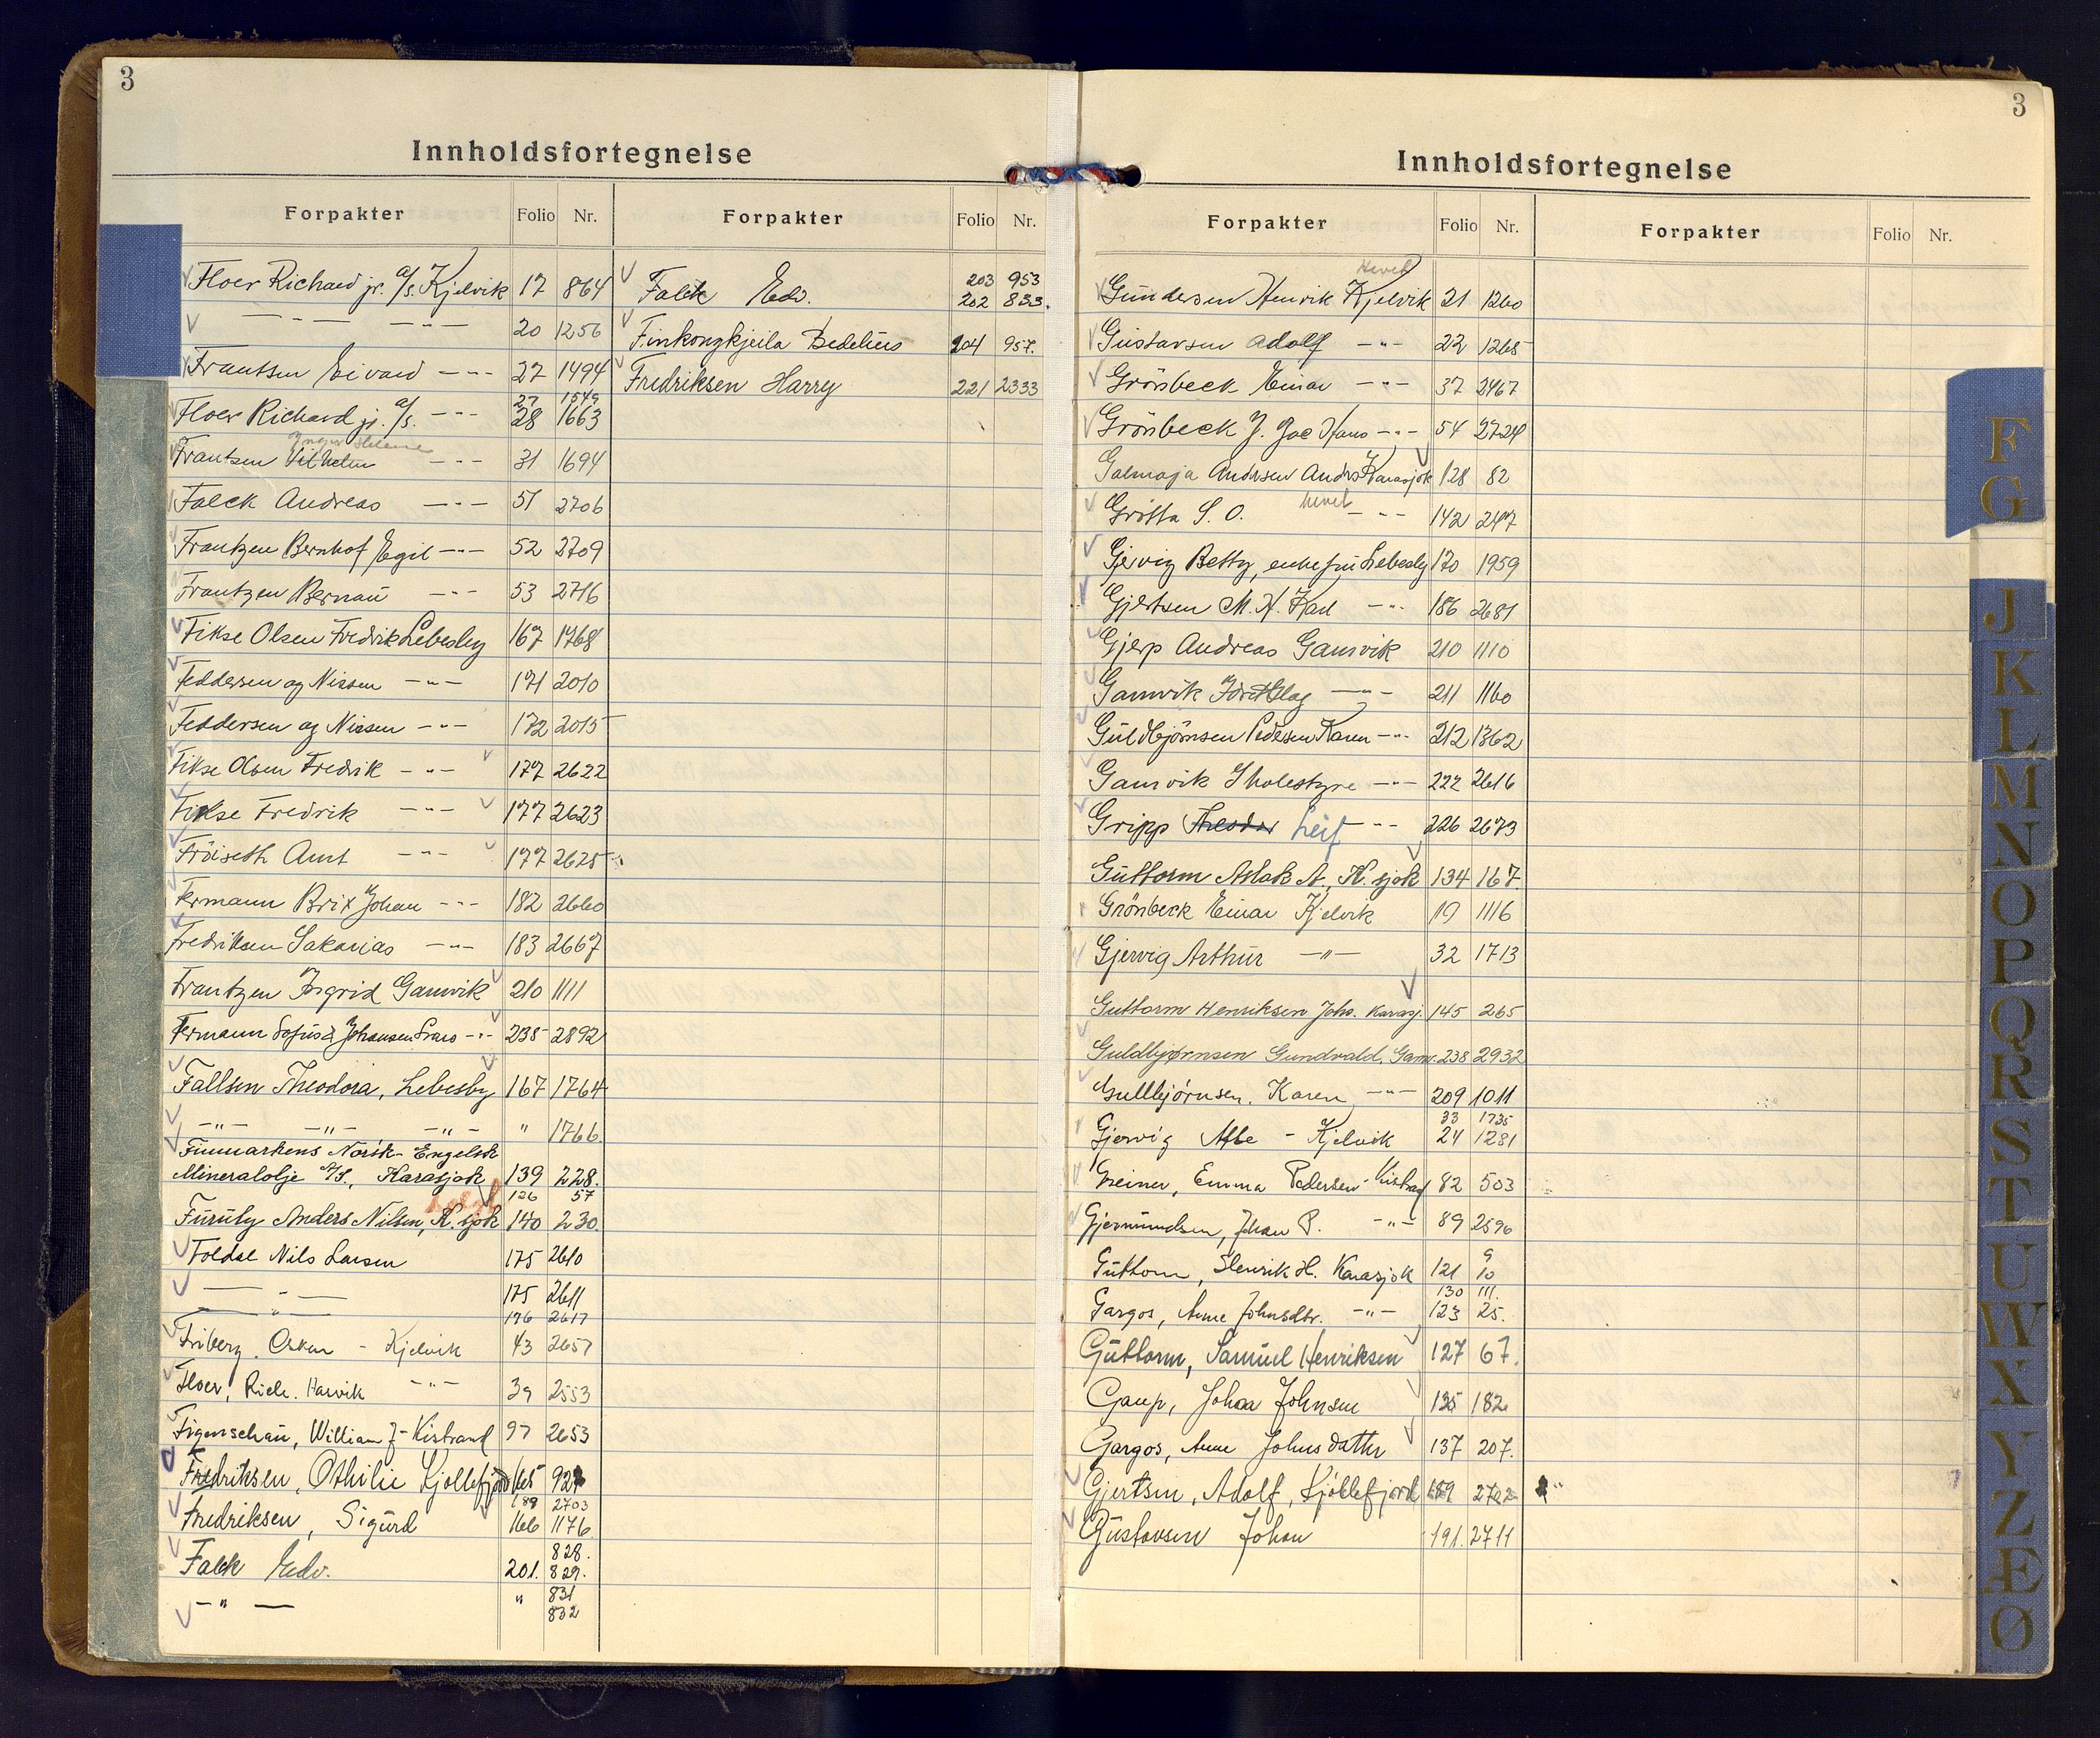 3
Innholdsfortegnelse
Forpakter Folio Nr. Forpakter Folio Nr.
Floer Richard jr. a/s. Kjelvik 17 864
— " — — " — 20 1256
Frantsen Eivard — " — 27 1494
27 1549
Floer Richard jr. a/s. — " — 28 1663
Inger Helene
Frantsen Vilhelm — " — 31 1694
Falck Andreas — " — 51 2706
Frantzen Bernhof Egil — " — 52 2709
Frantzen Bernau — " — 53 2716
Fikse Olsen Fredrik Lebesby 167 1768
Feddersen og Nissen — " — 171 2010
Feddersen og Nissen — " — 172 2015
Fikse Olsen Fredrik — " — 177 2622
Fikse Fredrik — " — 177 2623
Fröiseth Arnt — " — 177 2625
Fermann Brix Johan — " — 182 2660
Fredriksen Sakarias — " — 183 2667
Frantzen Ingrid Gamvik 210 1111
Fermann Sofus & Johansen — " — 235 2892
Fallsen Theodora, Lebesby 167 1764
— " — — " — — " — " 1766.
Finmarkens Norsk-Engelsk
Mineralolje A/S., Karasjok 139 228.
126 57
Furuly Anders Nilsen, K.sjok 140 230
Foldal Nils Larsen 175 2610
— " — 175 2611
— " — 176 2617
Friberg. Oskar - Kjelvik 43 2657
Floer, Rich. Harvik — " — 39 2553
Figenschau, William J - Kistrand 97 2653
Fredriksen, Othilie Kjøllefjord 165 927
189 2703
Fredriksen, Sigurd 166 1176
828.
Falck Edv. 201. 829.
— " — " 831
832
203 953
Falck Edv. 202 833.
Finkongkjeila Bedelius 204 957.
Fredriksen Harry 221 2333
3
Innholdsfortegnelse
Forpakter Folio Nr. Forpakter Folio Nr.
hevet
Gundersen Henrik Kjelvik 21 1260
Gustavsen Adolf — " — 22 1265
Grönbeck Einar — " — 37 2467
Grönbeck J. Jac Hans — " — 54 2724
Galmaja Andersen Anders Karasjok 128 82
hevet
Grötta S. O. — " — 142 247
Gjervig Betty, enkefru Lebesby 170 1959
Gjertsen M. H. Karl — " — 186 2681
Gjerp Andreas Gamvik 210 1110
Gamvik Idrettslag — " — 211 1160
Guldbjörnsen Pedersen Karen — " — 212 1362
Gamvik Skolestyre — " — 222 2616
Gripp Theodor Leif — " — 226 2673
Guttorm Aslak A., K.sjok 134 167.
Grönbeck Einar Kjelvik 19 1116
Gjervig Arthur — " — 32 1713
Guttorm Henriksen Johs. Karasj. 145 265
Guldbjørnsen Gundvald, Gamv. 238 2932
Gullbjörnsen, Karen — " — 209 1011
33 1735
Gjervig Albe - Kjelvik 24 1281
Greiner, Emma Pedersen - Kistrand 82 503
Gjermundsen, Johan P. — " — 89 2596
9
Guttorm, Henrik H. Karasjok 121 10
130 111.
Gargos, Anne Johnsdtr. — " — 123 25.
Guttorm, Samuel Henriksen 127 67.
Gaup, Johan Johnsen 135 182
Gargos, Anne Johnsdatter 137 207.
Gjertsen, Adolf, Kjöllefjord 189 2702
Gustavsen Johan 191. 2711
F
G
J
K
L
M
N
O
P
Q
R
S
T
U
W
X
Y
Z
Æ
Ø